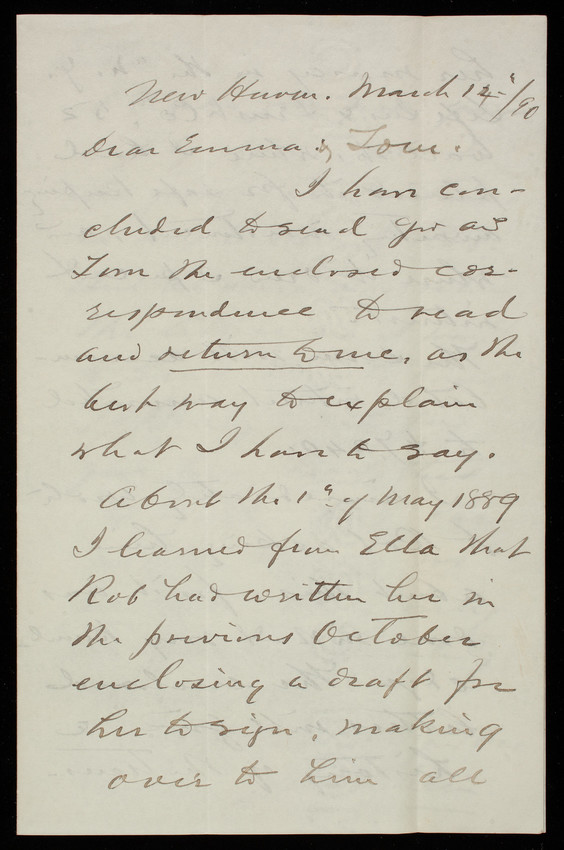 New Haven. March 14"/90
Dear Emma & Tom.
I have con-
cluded to send you and
Tom the enclosed cor-
respondence to read
and return to me, as the
best way to explain
what I have to say.
About the 1" of May 1889
I learned from Ella that
Rob had written her in
the previous October
enclosing a draft for
her to sign, making
over to him all